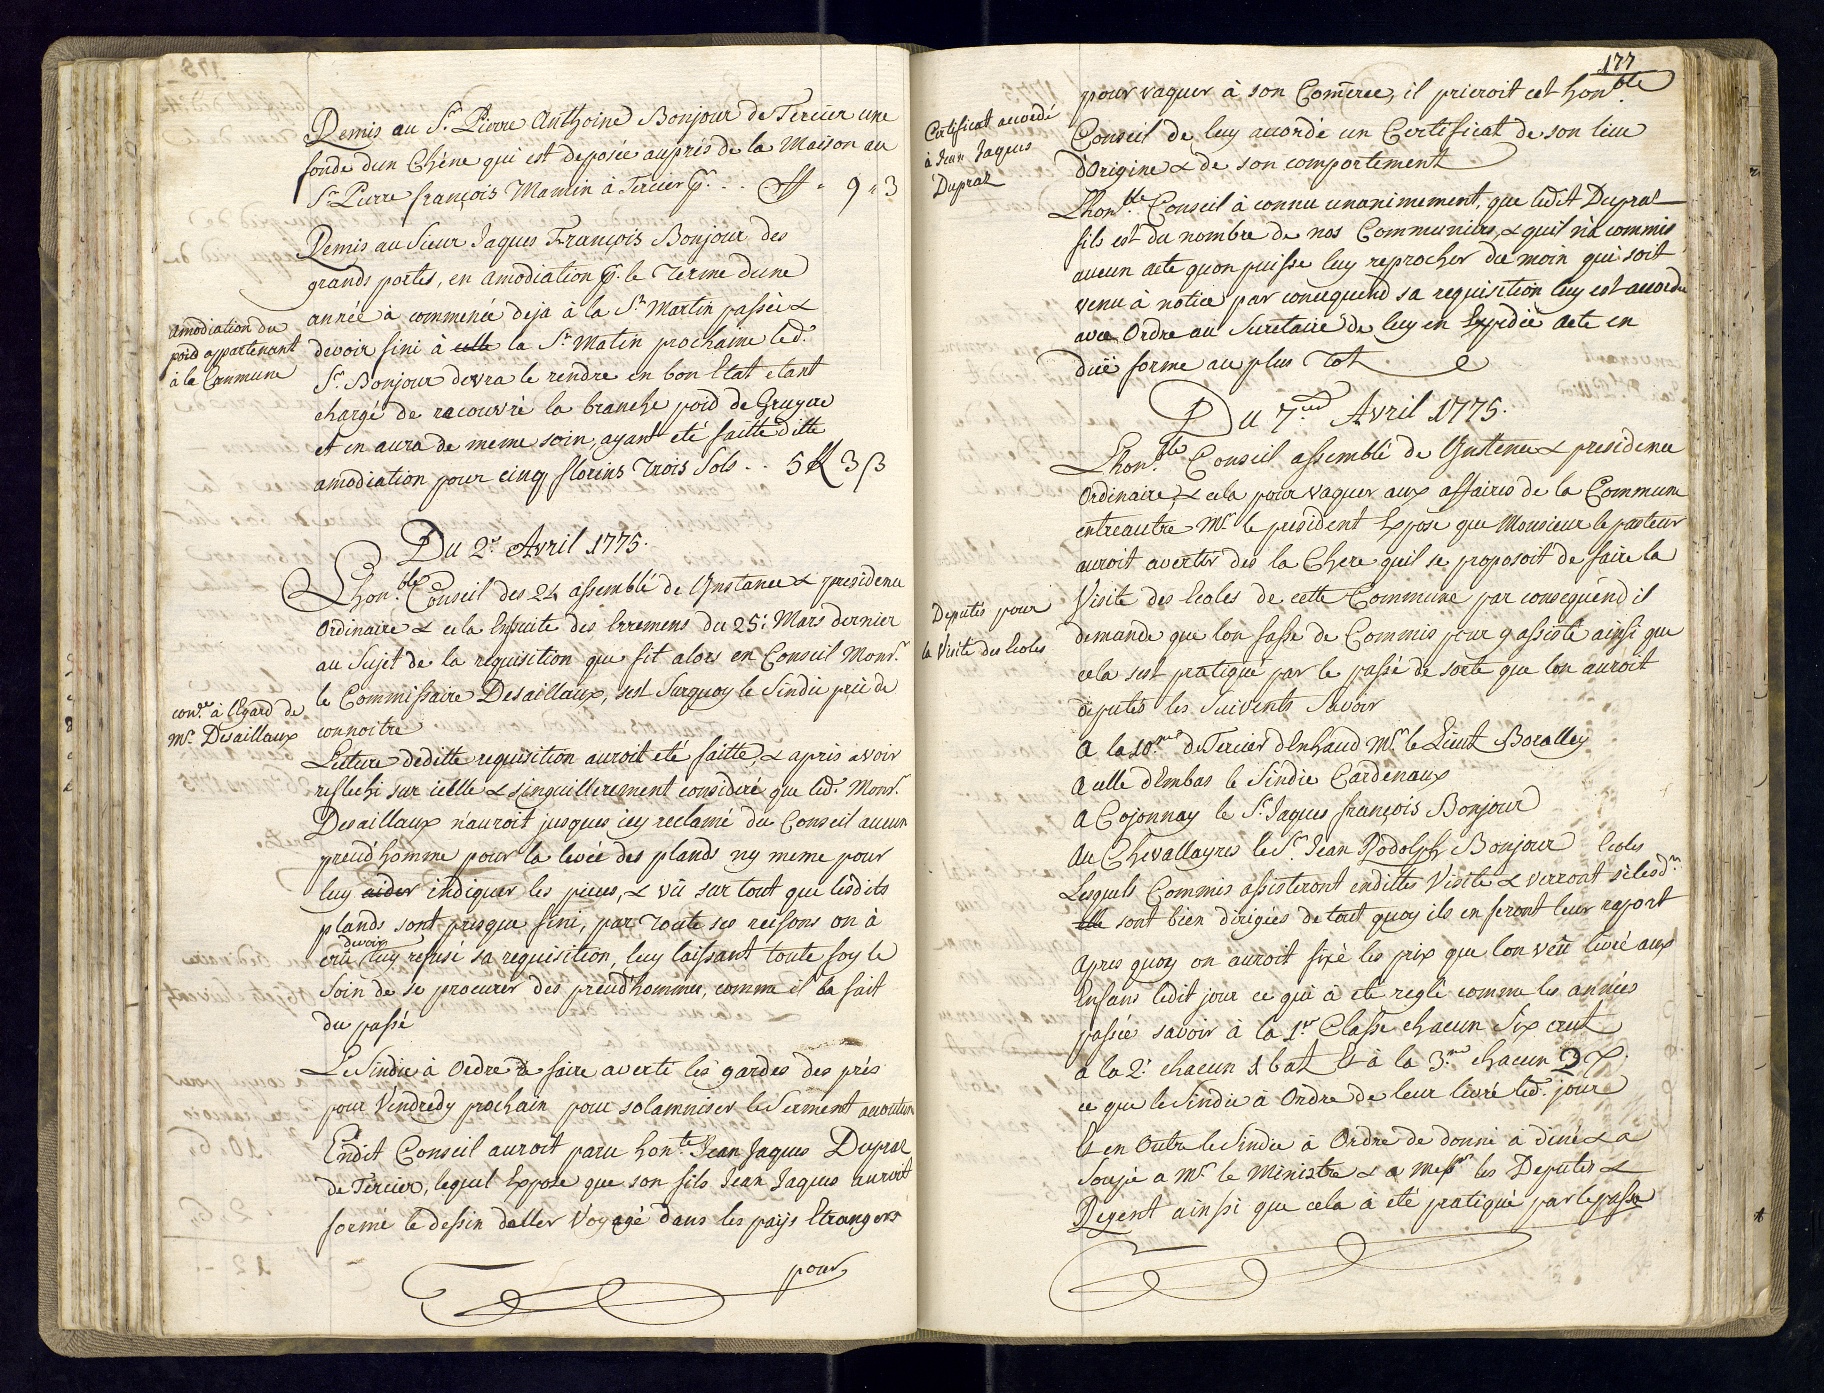 Remis au Sr. Pierre Anthoine Bonjour de Tercier une
fonde dun Chène qui est deposée auprés de la Maison au
Sr. Pierre françois Mamin à Tercier pr. . . ff " 9 " 3
Remis au Sieur Jaques François Bonjour des
grands portes, en amodiation pr. le Terme dune
année à commencée deja à la St. Martin passée &
amodiation du
poid appartenant
à la Commune
devoir fini à celle la St. Matin prochaine led.
Sr. Bonjour devra le rendre en bon Etat etant
chargé de racouvré la branche poid de Gruyere
et en aura de meme soin, ayant eté faitte ditte
amodiation pour cinq florins Trois Sols . . 5 ff 3 ß
Du 2e. Avril 1775.
Lhon.ble Conseil des 24 assemblé de Ynstance & presidence
Ordinaire & cela Ensuite des Erremens du 25: Mars dernier
au Sujet de la requisition que fit alors en Conseil Monsr.
le Commissaire Desaillaux, sest Surquoy le Sindic prié de
connoitre
con.ce à l'Egard de
Mr. Desaillaux
Lecture deditte requisition auroit eté faitte, & apris avoir
reflechi sur icelle & singuillierement consideré que led. Monsr.
Desaillaux n'auroit jusques icy reclamé du Conseil aucun
preud'homme pour la levée des plands ny meme pour
luy aider indiquer les pieces, & vû sur tout que lesdits
plands sont presque fini, par Toute ses reisons on à
crû devoir luy refusé sa requisition, luy laissant toute foy le
Soin de se procurer des preud'hommes, comme il la fait
du passé
Le Sindic à Ordre de faire averti les gardes des prés
pour Vendredy prochain pour solamniser le Serment accoutum
Endit Conseil auroit paru hon.te Jean Jaques Dupraz
de Tercier, lequel Expose que son fils Jean Jaques auroit
formé le dessin daller Voyagé dans les païs Etrangers
pour
177
pour vaquer à son Comerce, il prieroit cet hon.ble
Conseil de luy accordé un Certificat de son lieu
d'Origine & de son comportement
Certificat accordé
à Jean Jaques
Dupraz
Lhon.ble Conseil à connu unanimement, que ledit Dupraz
fils est du nombre de nos Communiers, & quil n'à commis
aucun acte quon puisse luy reprocher du moin qui soit
venu à notice par consequend sa requisition luy est accordée
avec Ordre au Secretaire de luy en Expediè Acte en
düe forme au plus Tot
Du 7.me Avril 1775.
Lhon.ble Conseil assemblé de Ynstence & presidence
Ordinaire & cela pour vaquer aux affaires de la Commune
entreautre Mr. le president Expose que Monsieur le pasteur
auroit averties des la Chere quil se proposoit de faire la
Visite des Ecoles de cette Commune par consequend il
demande que lon fasse de Commis pour y assisté ainsi que
cela sest pratiqué par le passé de sorte que lon auroit
députés les Suivents Savoir
Deputés pour
la Visite des Ecoles
A la 10.me de Tercier d'Enhaud Mr. le Lieut Boralley
A celle d'Embas le Sindic Cardenaux
A Cojonnay le Sr. Jaques françois Bonjour
Au Chevallayres le Sr. Jean Rodolph Bonjour
Lesquels Commis assisteront endittes Visite & verront si lesd. Ecoles
elle sont bien dirigées de tout quoy ils en feront leur raport
Apres quoy on auroit fixé les prix que lon veû livré aux
Enfans ledit jour ce qui à eté reglé comme les années
passée savoir à la 1re. Classe chacun Six creut
à la 2e. chacun 1 batz Et à la 3.me chacun 3 X.
ce que le Sindic à Ordre de leur livré led. jour
Et en Outre le Sindic à Ordre de donné à diné & a
Soupé a Mr. le Ministre & a Messrs. les Deputés &
Regent ainssi que cela à eté pratiqué par le passé